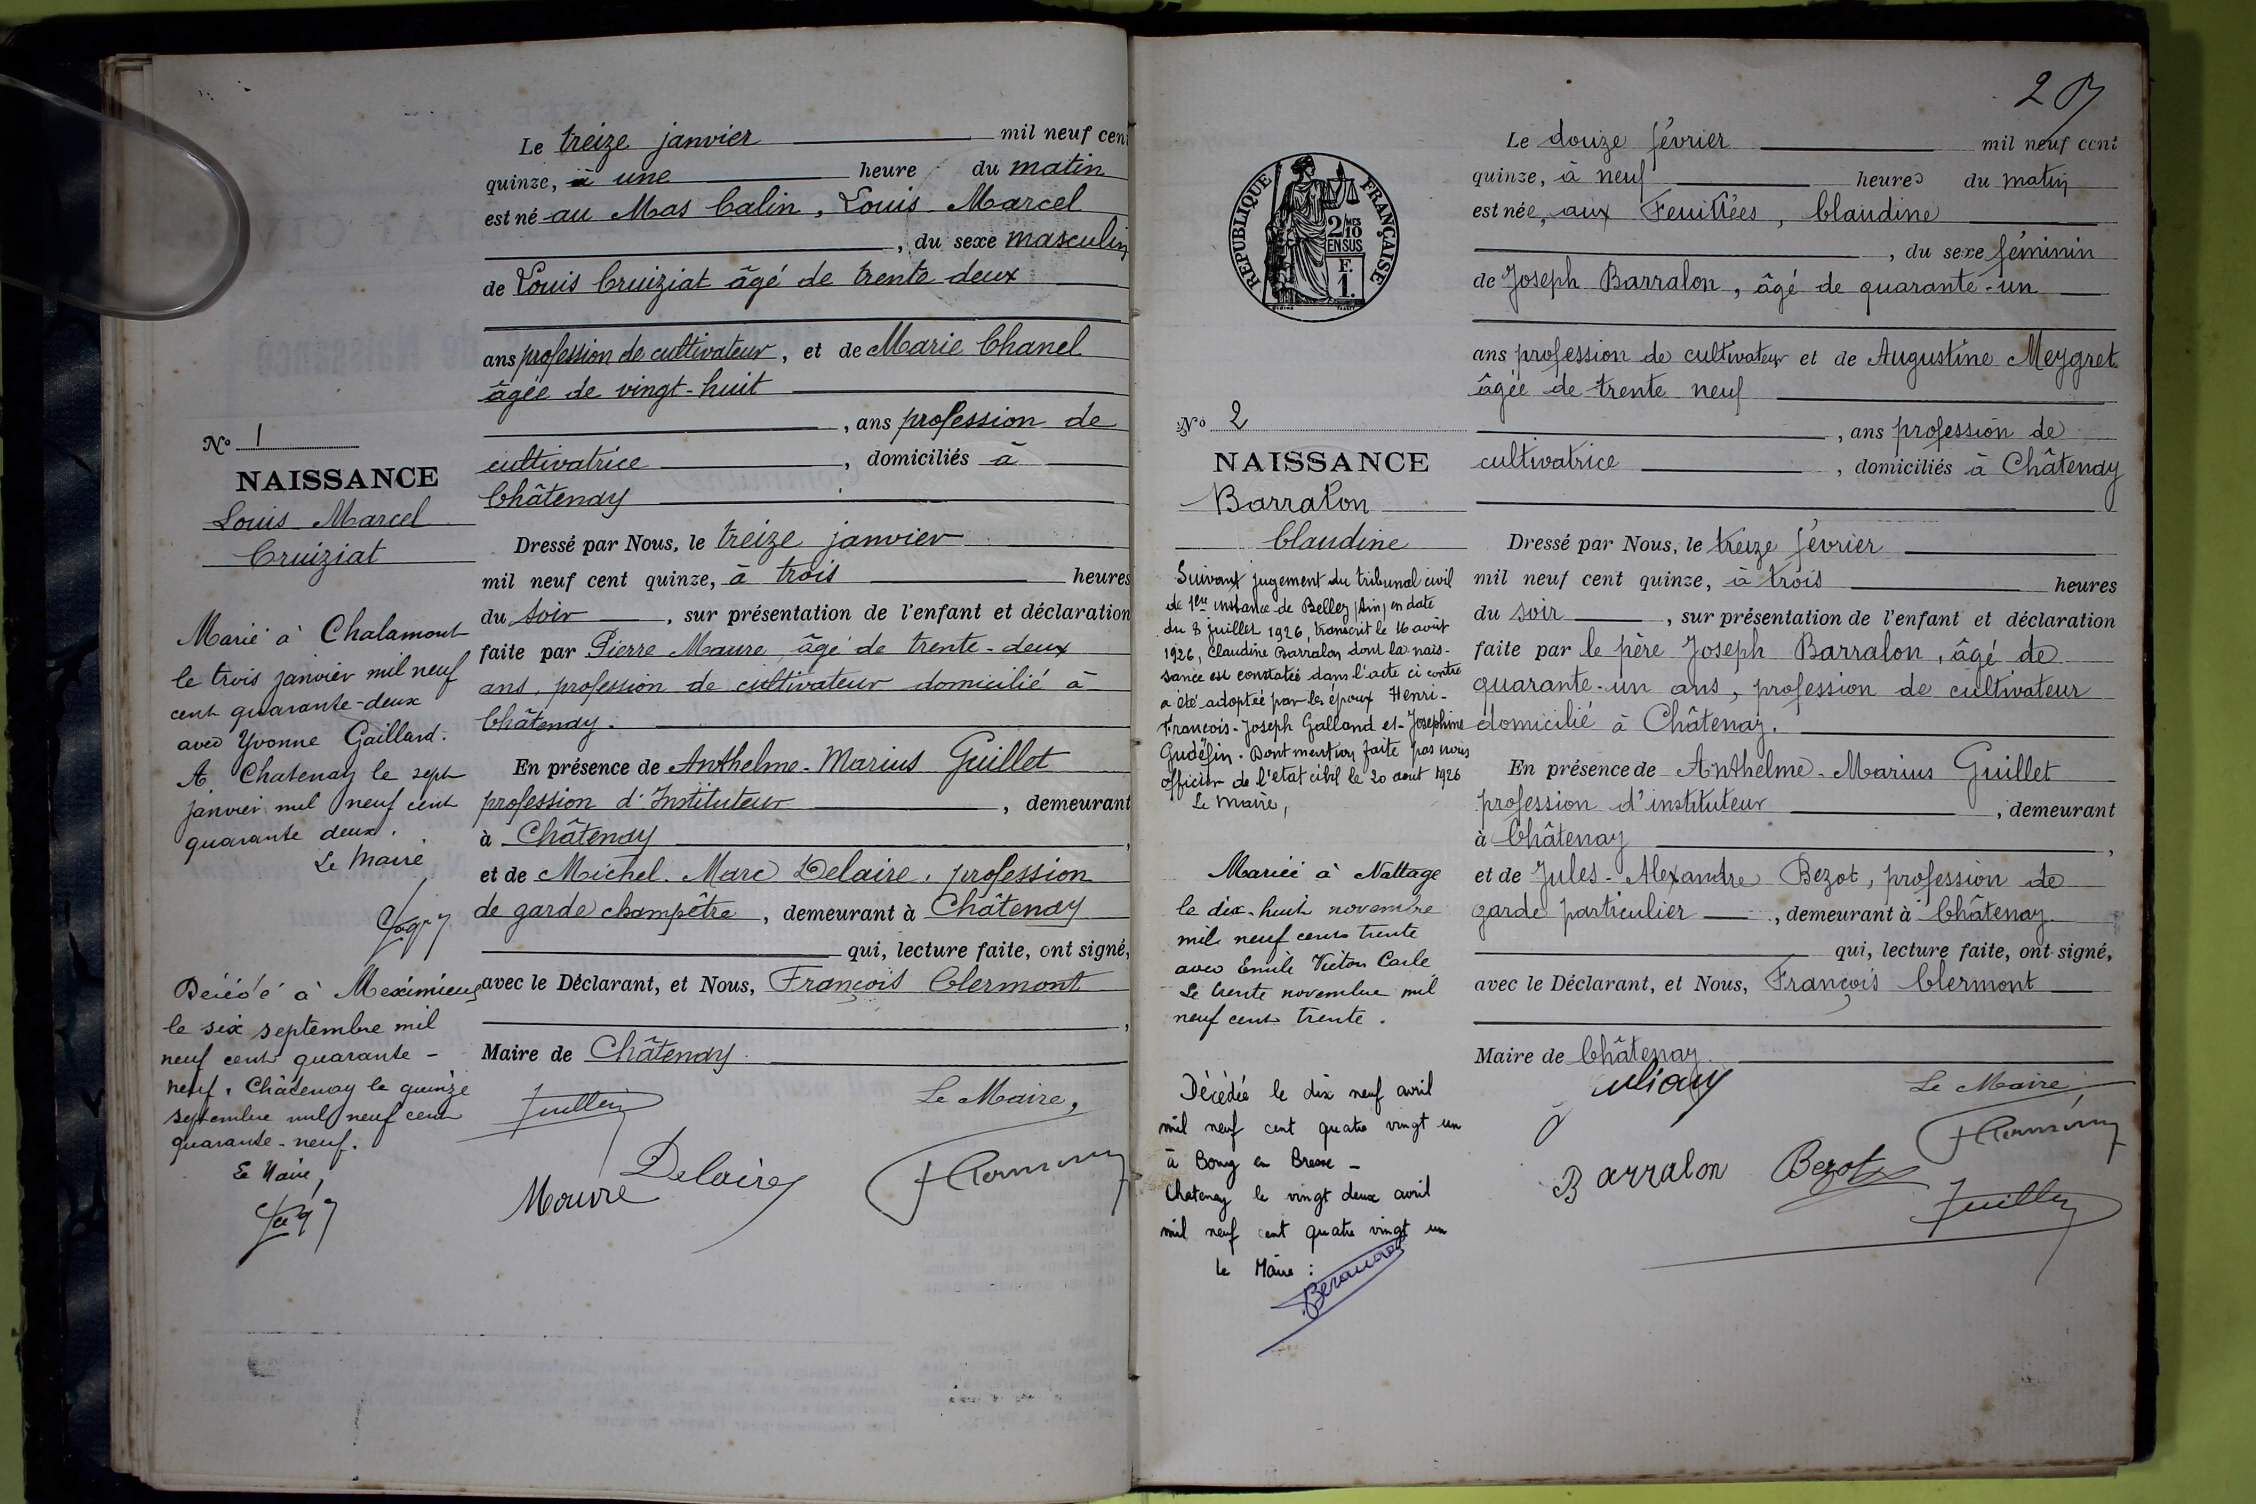 Le treize janvier mil neuf cent
quinze, à une heure du matin
est né au Mas Calin, Louis Marcel
, du sexe masculin
de Louis Cruiziat âgé de trente deux
ans profession de cultivateur, et de Marie Chanel
âgée de vingt-huit
, ans profession de
cultivatrice, domiciliés à
Châtenay
Dressé par Nous, le treize janvier
mil neuf cent quinze, à trois heures
du soir, sur présentation de l'enfant et déclaration
faite par Pierre Maure âgé de trente-deux
ans, profession de cultivateur domicilié à
Châtenay.
En présence de Anthelme-Marius Guillet
profession d'Instituteur, demeurant
à Châtenay,
et de Michel Marc Delaire, profession
de garde champêtre, demeurant à Châtenay
qui, lecture faite, ont signé,
avec le Déclarant, et Nous, François Clermont
,
Maire de Châtenay.
Le Maire,
Delaire
Mouvre
No 1
NAISSANCE
Louis Marcel
Cruiziat
Marié à Chalamont
le trois janvier mil neuf
cent quarante-deux
avec Yvonne Gaillard.
A Chatenay le sept
janvier mil neuf cent
quarante deux.
Le Maire
Décédé à Meximieux
le six septembre mil
neuf cent quarante-
neuf. Châtenay le quinze
septembre mil neuf cent
quarante-neuf.
Le Maire,
2
RÉPUBLIQUE FRANÇAISE
2/10 MES
EN SUS
F.
1.
No 2
NAISSANCE
Barralon
Claudine
Suivant jugement du tribunal civil
de 1ère instance de Belley (Ain) en date
du 8 juillet 1926, transcrit le 16 août
1926, Claudine Barralon dont la nais-
sance est constatée dans l'acte ci contre
a été adoptée par les époux Henri-
François-Joseph Galland et Joséphine
Gudélin. Dont mention faite par nous
officier de l'état civil le 20 août 1926
Le Maire,
Mariée à Nattage
le dix-huit novembre
mil neuf cent trente
avec Emile Victor Carle
Le trente novembre mil
neuf cent trente.
Décédée le dix neuf avril
mil neuf cent quatre vingt un
à Bourg en Bresse -
Chatenay le vingt deux avril
mil neuf cent quatre vingt un
Le Maire :
Le douze février mil neuf cent
quinze, à neuf heures du matin
est née, aux Feuillées, Claudine
, du sexe féminin
de Joseph Barralon, âgé de quarante-un
ans profession de cultivateur et de Augustine Meygret
âgée de trente neuf
, ans profession de
cultivatrice, domiciliés à Châtenay
Dressé par Nous, le treize février
mil neuf cent quinze, à trois heures
du soir, sur présentation de l'enfant et déclaration
faite par le père Joseph Barralon, âgé de
quarante-un ans, profession de cultivateur
domicilié à Châtenay.
En présence de Anthelme-Marius Guillet
profession d'instituteur, demeurant
à Châtenay,
et de Jules-Alexandre Bezot, profession de
garde particulier, demeurant à Châtenay
qui, lecture faite, ont signé,
avec le Déclarant, et Nous, François Clermont
Maire de Châtenay.
Le Maire
Barralon Bezot